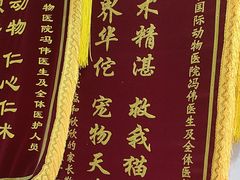 国际动物医院冯伟医生及全体医
术精湛 救我猫
界华佗 宠物天
欣欣的家长
物医院冯伟医生及全体医护人员
动物 仁心仁术